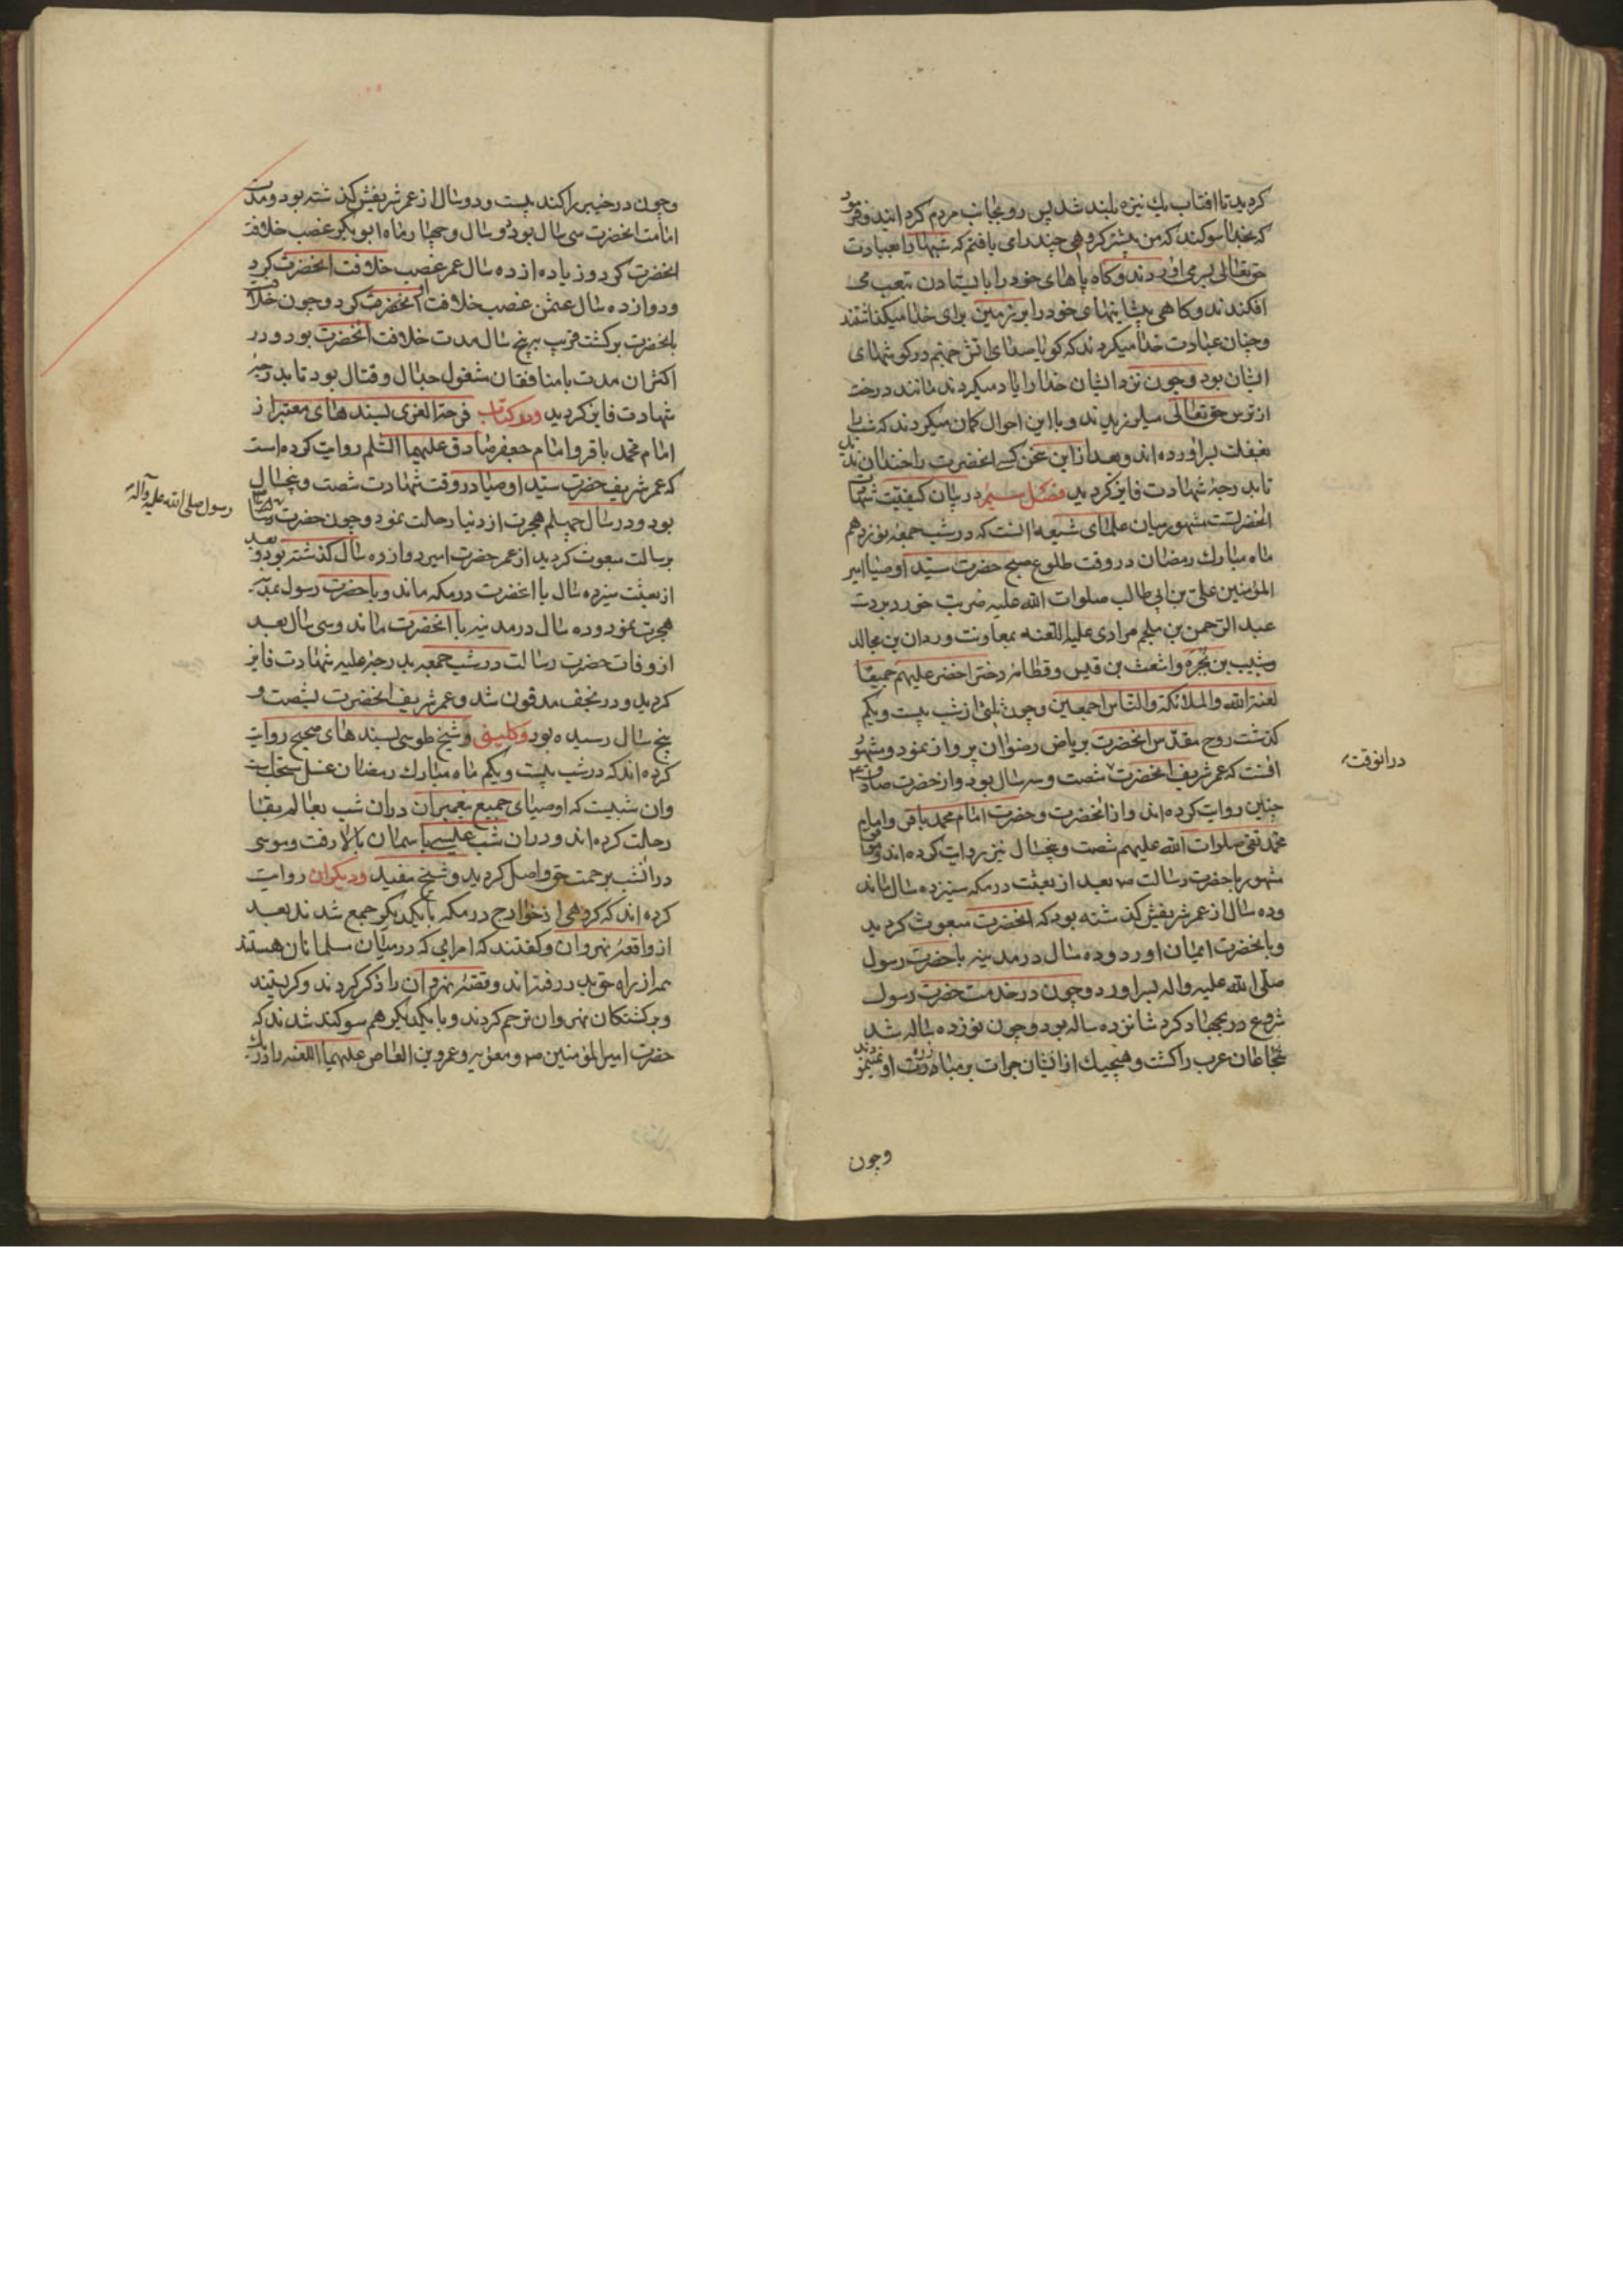 کردید تا افتاب یك نیزه بلند شد پس رو بجانب مردم کردانید و فرمود
که بخدا سوکند که من پیشتر کروهی چند را می یافتم که شبها را بعبادت
حق تعالی بسر می اوردند و کاه پاهای خود را بایستادن بتعب می
افکندند و کاهی پیشانیهای خود را بر زمین برای خدا میکذاشتند
و چنان عبادت خدا میکردند که کویا صدای اتش جهنم در کوشهای
ایشان بود و چون نزد ایشان خدا را یاد میکردند مانند درخت
از ترس حق تعالی میلرزیدند و با این احوال کمان میکردند که شب را
بغفلت بسر اورده اند و بعد از این سخن کسی انحضرت را خندان ندید
تا بدرجهٔ شهادت فایز کردید فصل سیم در بیان کیفیّت شهادت
انحضرتست مشهور میان علمای شیعه انست که در شب جمعه نوزدهم
ماه مبارك رمضان در وقت طلوع صبح حضرت سیّد اوصیا امیر
المؤمنین علیّ بن ابی طالب صلوات الله علیه ضربت خورد بر دست
عبد الرّحمن بن ملجم مرادی علیه اللعنه بمعاونت وردان بن مجالد
و شبیب بن بجره و اشعث بن قیس و قطامه دختر اخضر علیهم جمیعا
لعنة الله والملائکة والنّاس اجمعین و چون ثلثی از شب بیست و یکم
کذشت روح مقدّس انحضرت بریاض رضوان پرواز نمود و مشهور
انست که عمر شریف انحضرت شصت و سه سال بود و از حضرت صادق ع
چنین روایت کرده اند و از انحضرت و حضرت امام محمد باقر و امام
محمّد تقی صلوات الله علیهم شصت و پنجسال نیز روایت کرده اند و موافق
مشهور با حضرت رسالت ص بعد از بعثت در مکه سیزده سال ماند
درانوقت
و ده سال از عمر شریفش کذشته بود که انحضرت مبعوث کردید
و بانحضرت ایمان اورد و ده سال در مدینه با حضرت رسول
صلّی الله علیه واله بسر اورد و چون در خدمت حضرت رسول
شروع در بجهاد کرد شانزده ساله بود و چون نوزده ساله شد
شجاعان عرب را کشت و هیچیك از ایشان جرات بر مبارزت او نمینمودند
وچون
وچون در خیبر را کند بیست و دو سال از عمر شریفش کذشته بود و مدت
امامت انحضرت سی سال بود دو سال و چهار ماه ابو بکر غصب خلافت
انحضرت کرد و زیاده از ده سال عمر غصب خلافت انحضرت کرد
و دوازده سال عثمن غصب خلافت انحضرت کرد و چون خلافت
بانحضرت برکشت قریب به پنج سال مدت خلافت انحضرت بود و در
اکثر ان مدت با منافقان مشغول جدال و قتال بود تا بدرجهٔ
شهادت فایز کردید و در کتاب فرحة الغری بسندهای معتبر از
امام محمد باقر و امام جعفر صادق علیهما السّلم روایت کرده است
که عمر شریف حضرت سیّد اوصیا در وقت شهادت شصت و پنجسال
بود و در سال چهلم هجرت از دنیا رحلت نمود و چون حضرت رسالت
رسول صلی الله علیه وآله
برسالت مبعوث کردید از عمر حضرت امیر دوازده سال کذشته بود و بعد
از بعثت سیزده سال با انحضرت در مکه ماند و با حضرت رسول بمدینه
هجرت نمود و ده سال در مدینه با انحضرت ماند و سی سال بعد
از وفات حضرت رسالت در شب جمعه بدرجهٔ علیه شهادت فایز
کردید و در نجف مدفون شد و عمر شریف انحضرت بشصت و
پنج سال رسیده بود و کلینی و شیخ طوسی بسندهای صحیح روایت
کرده اند که در شب بیست و یکم ماه مبارك رمضان غسل سنت است
وان شبیست که اوصیای جمیع پیغمبران دران شب بعالم بقا
رحلت کرده اند و دران شب عیسی باسمان بالا رفت و موسی
درانشب برحمت حق واصل کردید و شیخ مفید و دیکران روایت
کرده اند که کروهی از خوارج در مکه با یکدیکر جمع شدند بعد
از واقعهٔ نهروان و کفتند که امرایی که در میان مسلمانان هستند
همه از راه حق بدر رفته اند و قصّهٔ نهروان را ذکر کردند و کریستند
و بر کشتکان نهروان ترحم کردند و با یکدیکر هم سوکند شدند که
حضرت امیر المؤمنین ص و معویه و عمرو بن العاص علیهما اللعنه را در یك